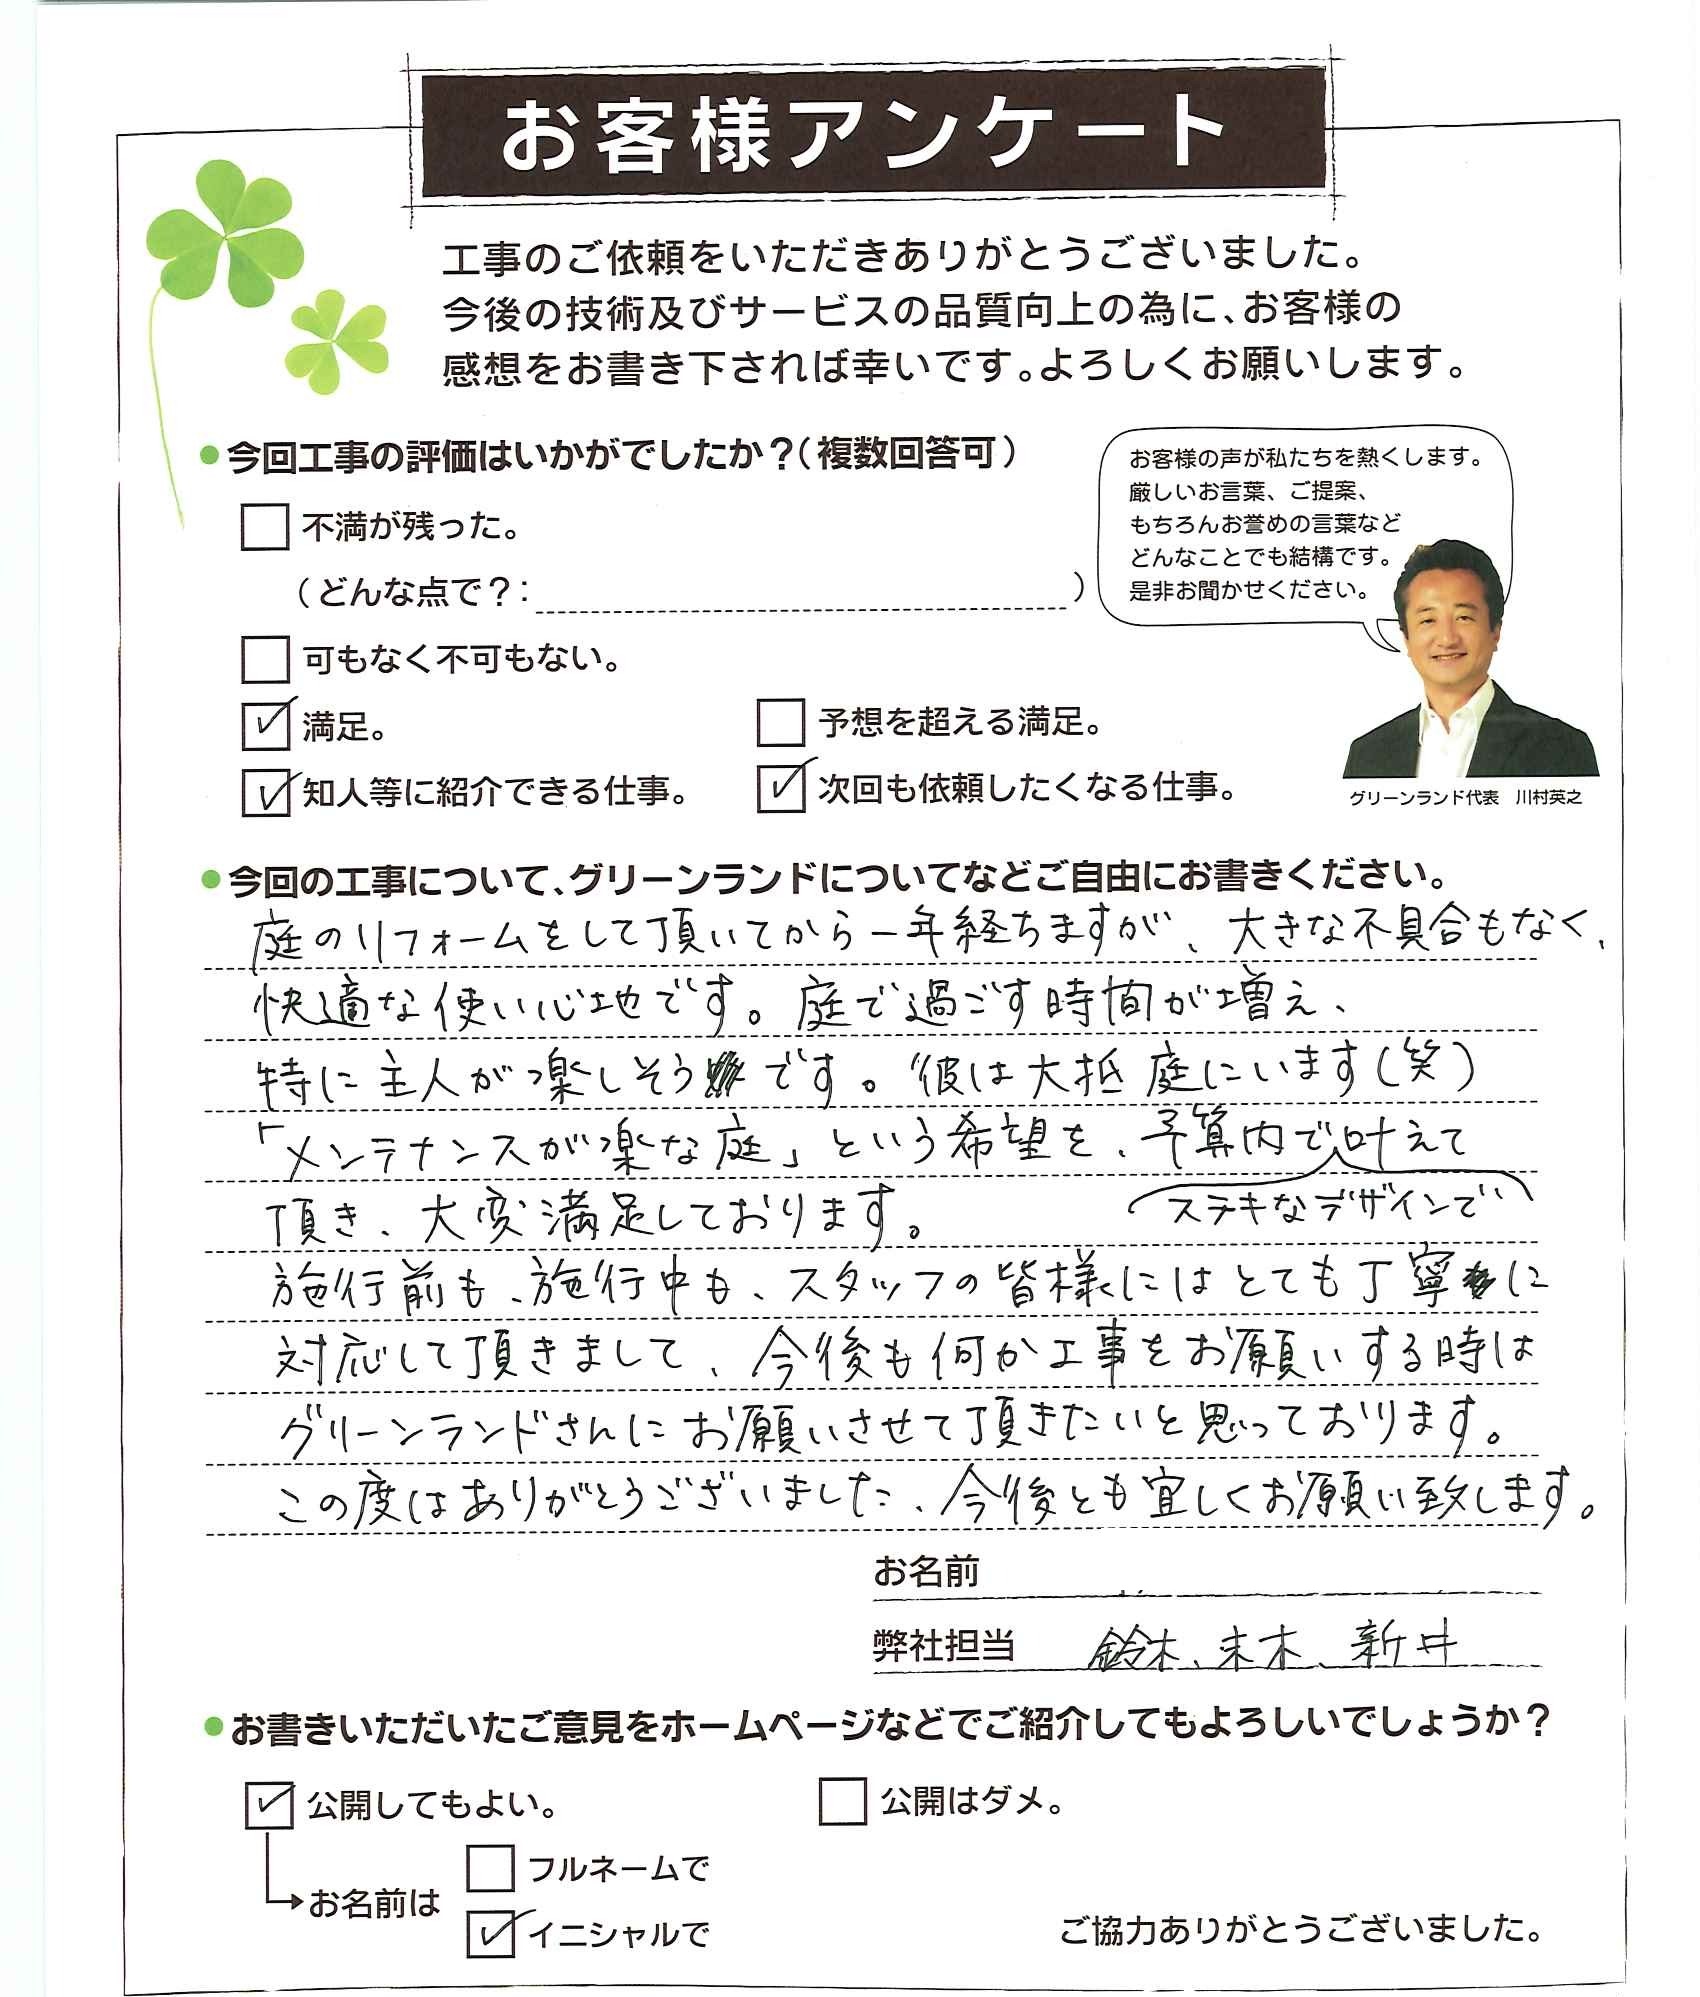 お客様アンケート
工事のご依頼をいただきありがとうございました。
今後の技術及びサービスの品質向上の為に、お客様の
感想をお書き下されば幸いです。よろしくお願いします。
●今回工事の評価はいかがでしたか?(複数回答可)
お客様の声が私たちを熱くします。
厳しいお言葉、ご提案、
もちろんお誉めの言葉など
どんなことでも結構です。
是非お聞かせください。
グリーンランド代表 川村英之
不満が残った。
(どんな点で?: )
可もなく不可もない。
満足。 予想を超える満足。
知人等に紹介できる仕事。 次回も依頼したくなる仕事。
●今回の工事について、グリーンランドについてなどご自由にお書きください。
庭のリフォームをして頂いてから一年経ちますが、大きな不具合もなく、
快適な使い心地です。庭で過ごす時間が増え、
特に主人が楽しそうです。彼は大抵庭にいます(笑)
「メンテナンスが楽な庭」という希望を、予算内で叶えて
ステキなデザインで
頂き、大変満足しております。
施行前も、施行中も、スタッフの皆様にはとても丁寧に
対応して頂きまして、今後も何か工事をお願いする時は
グリーンランドさんにお願いさせて頂きたいと思っております。
この度はありがとうございました、今後とも宜しくお願い致します。
お名前
弊社担当 鈴木、末木、新井
●お書きいただいたご意見をホームページなどでご紹介してもよろしいでしょうか?
公開してもよい。 公開はダメ。
お名前は
フルネームで
イニシャルで
ご協力ありがとうございました。